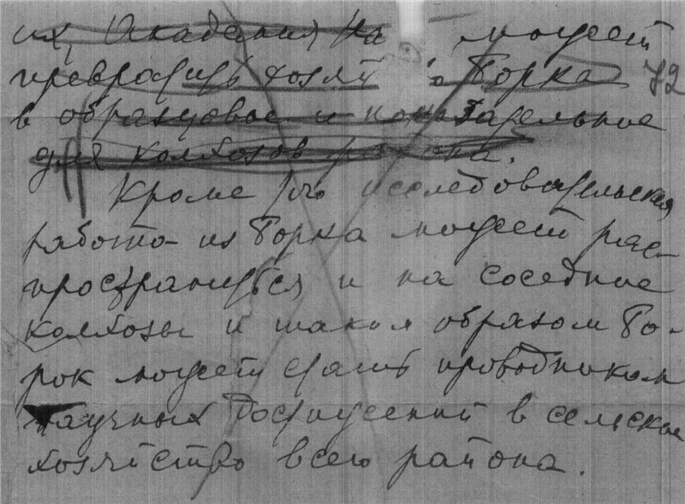 их, Академия На может
превратить хозяй Борка 72
в образцовое и показательное
для колхозов района.
Кроме того исследовательская
работа из Борка может рас-
пространиться и на соседние
колхозы и таким образом Бо-
рок может стать проводником
научных достижений в сельское
хозяйство всего района.